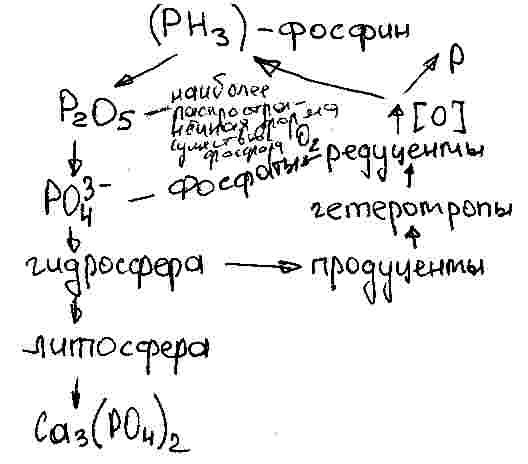 (PH3) - фосфин
P
P2O5 - наиболее
распростра-
нённая форма
существов.
фосфора O2
[O]
редуценты
PO4 3- - фосфаты
гетеротропы
гидросфера → продуценты
литосфера
Ca3(PO4)2